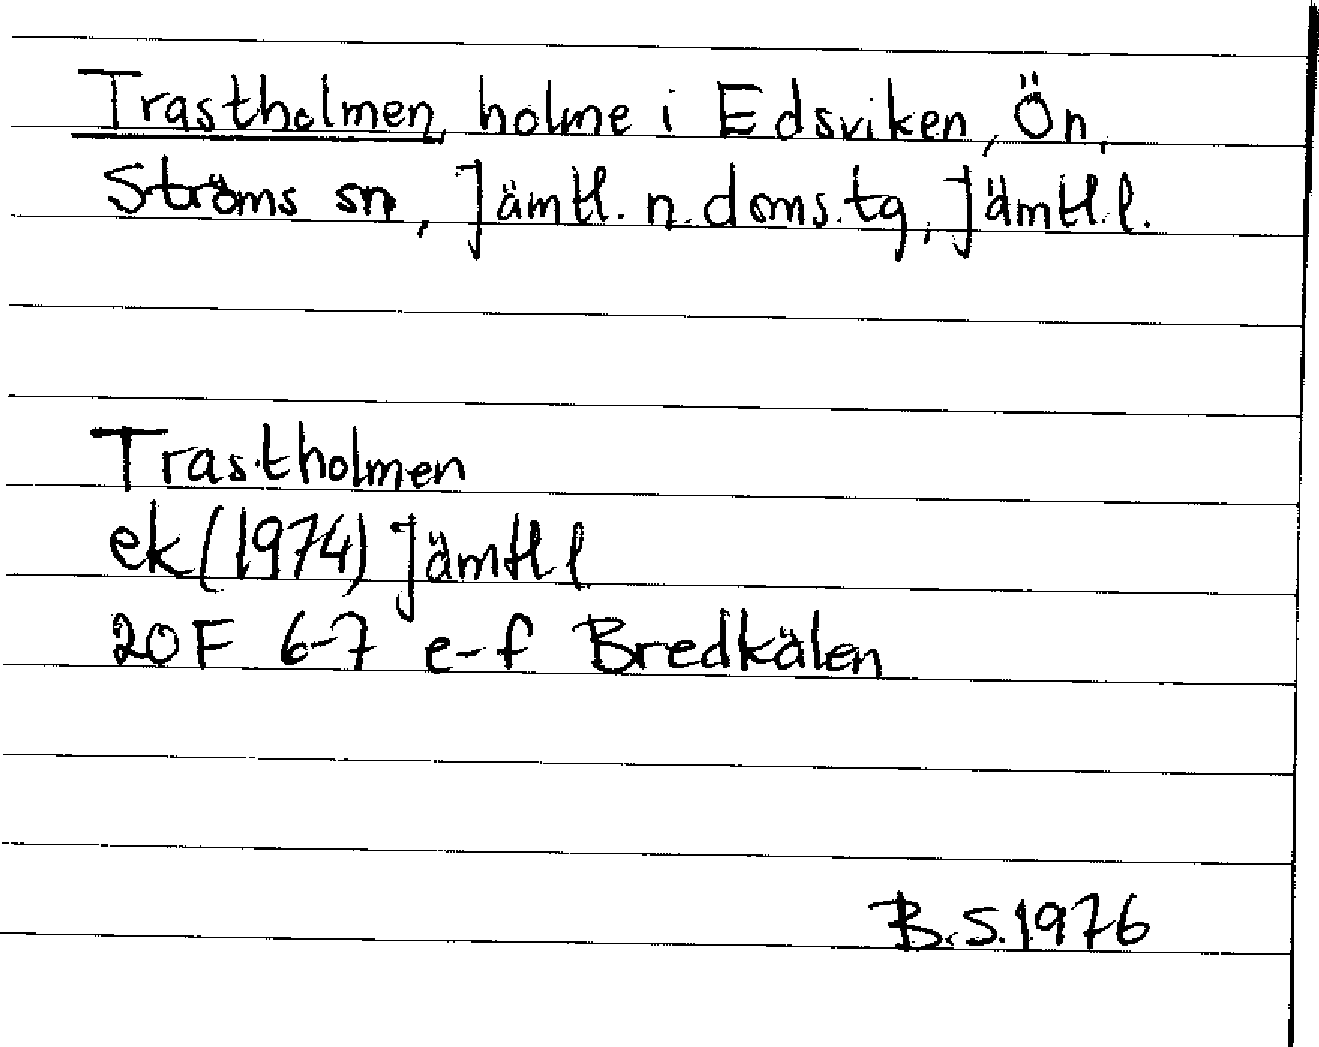 Trastholmen, holme i Edsviken, Ön,
Ströms sn, Jämtl. n. doms.tg, Jämtl.l.
Trastholmen
ek (1974) Jämtl l
20F 6-7 e-f Bredkälen
B.S.1976